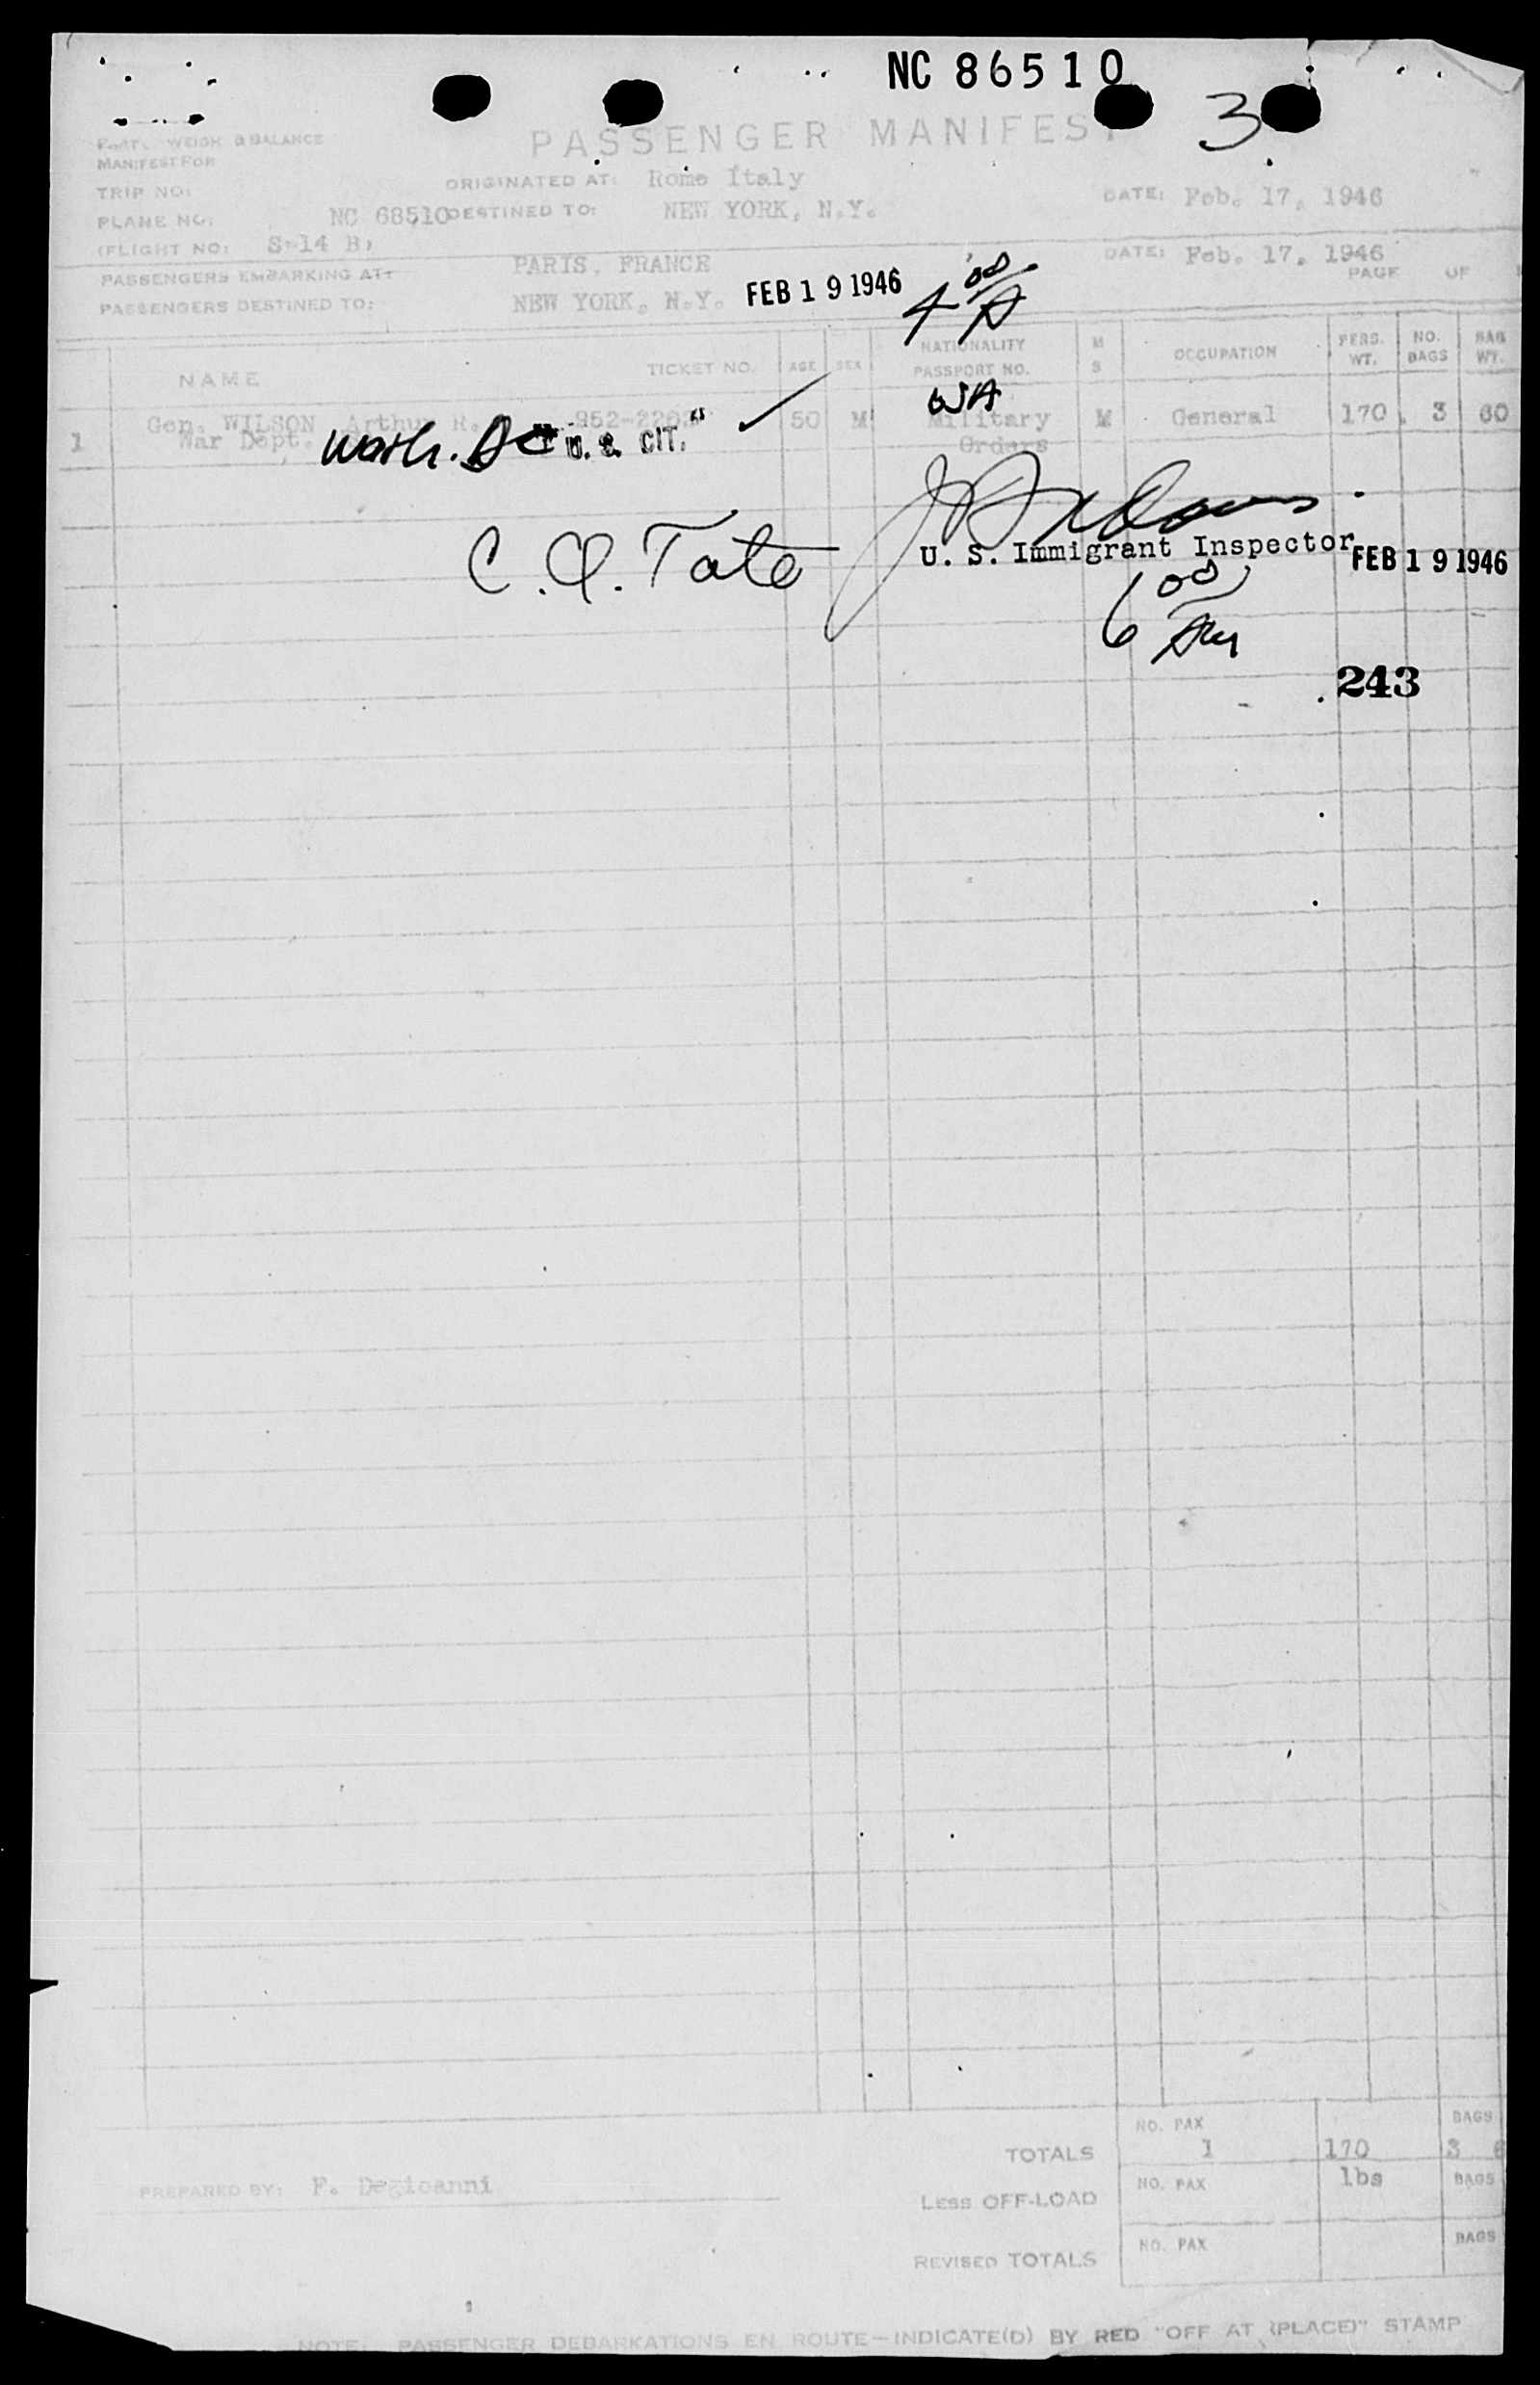 NC 86510
3
PASSENGER MANIFEST
WEIGH & BALANCE
MANIFEST FOR
TRIP NO:
ORIGINATED AT: Rome Italy
DATE: Feb. 17, 1946
PLANE NO: NC 68510
DESTINED TO: NEW YORK, N.Y.
(FLIGHT NO: S-14 B)
PASSENGERS EMBARKING AT: PARIS, FRANCE
DATE: Feb. 17, 1946
PAGE OF
PASSENGERS DESTINED TO: NEW YORK, N.Y. FEB 19 1946 4 00 A
NAME TICKET NO. AGE SEX NATIONALITY PASSPORT NO. M S OCCUPATION PERS. WT. NO. BAGS BAG WT.
USA
1 Gen. WILSON Arthur R. 50 M Military M General 170 3 60
War Dept. Wash. DC U. S. CIT." Orders
C. Q. Tate
U. S. Immigrant Inspector FEB 19 1946
6 00 AM
243
NO. PAX BAGS
TOTALS 1 170 3 6
PREPARED BY: F. Degioanni
LESS OFF-LOAD NO. PAX lbs BAGS
REVISED TOTALS NO. PAX BAGS
NOTE: PASSENGER DEBARKATIONS EN ROUTE—INDICATE(D) BY RED "OFF AT (PLACE)" STAMP